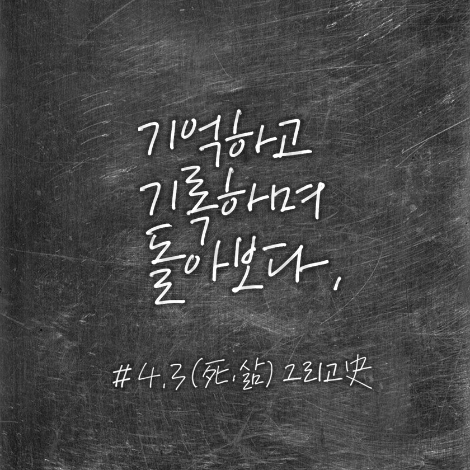 기억하고
기록하며
돌아보다,
#4.3(死,삶) 그리고 史